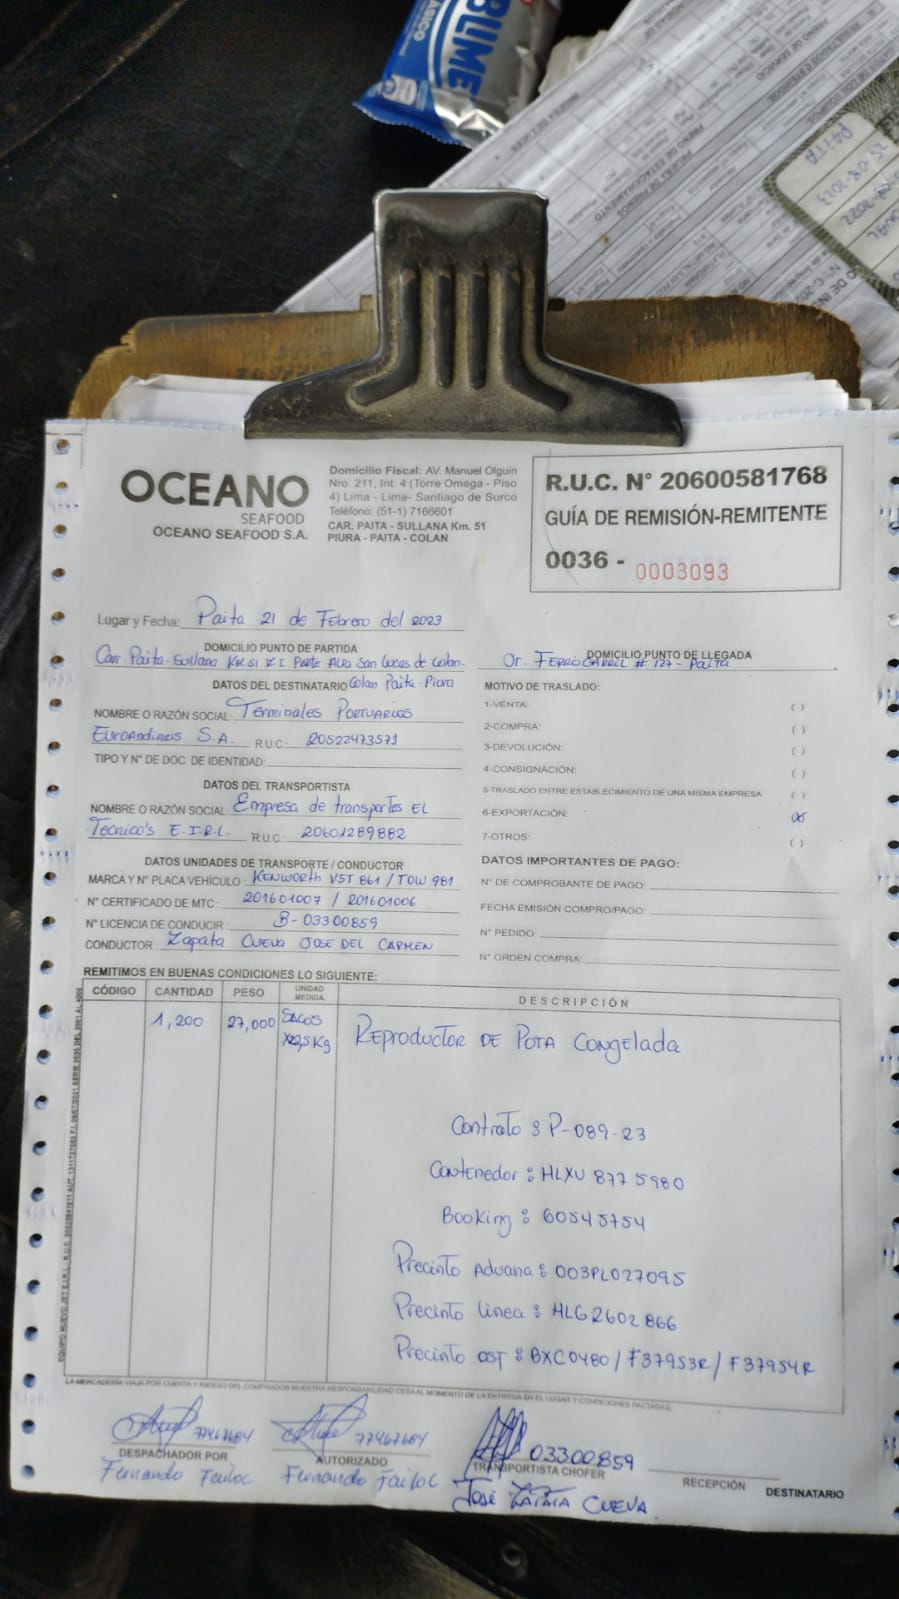 BLUME
ÁSICO
PAITA
25-08-2023
OCEANO
SEAFOOD
OCEANO SEAFOOD S.A.
Domicilio Fiscal: AV. Manuel Olguin
Nro. 211, Int. 4 (Torre Omega - Piso
4) Lima - Lima- Santiago de Surco
Teléfono: (51-1) 7166601
CAR. PAITA - SULLANA Km. 51
PIURA - PAITA - COLAN
R.U.C. N° 20600581768
GUÍA DE REMISIÓN-REMITENTE
0036 - 0003093
Lugar y Fecha: Paita 21 de Febrero del 2023
DOMICILIO PUNTO DE PARTIDA
Carr. Paita-Sullana Km 51 Z.I Parte Alta San Lucas de Colan-
Colan Paita-Piura
DOMICILIO PUNTO DE LLEGADA
Cr. Ferrocarril # 127 - Paita
DATOS DEL DESTINATARIO
NOMBRE O RAZÓN SOCIAL: Terminales Portuarios
Euroandinos S.A. R.U.C: 20522473571
TIPO Y N° DE DOC. DE IDENTIDAD:
DATOS DEL TRANSPORTISTA
NOMBRE O RAZÓN SOCIAL: Empresa de transportes EL
Tecnico's E.I.R.L. R.U.C: 20601289882
DATOS UNIDADES DE TRANSPORTE / CONDUCTOR
MARCA Y N° PLACA VEHÍCULO: Kenworth V5T 861 / TOW 981
N° CERTIFICADO DE MTC: 201601007 / 201601006
N° LICENCIA DE CONDUCIR: B-03300859
CONDUCTOR: Zapata Cueva Jose del Carmen
MOTIVO DE TRASLADO:
1-VENTA: ( )
2-COMPRA: ( )
3-DEVOLUCIÓN: ( )
4-CONSIGNACIÓN: ( )
5-TRASLADO ENTRE ESTABLECIMIENTO DE UNA MISMA EMPRESA ( )
6-EXPORTACIÓN: (x)
7-OTROS: ( )
DATOS IMPORTANTES DE PAGO:
N° DE COMPROBANTE DE PAGO:
FECHA EMISIÓN COMPRO/PAGO:
N° PEDIDO:
N° ORDEN COMPRA:
REMITIMOS EN BUENAS CONDICIONES LO SIGUIENTE:
CÓDIGO CANTIDAD PESO UNIDAD MEDIDA. DESCRIPCIÓN
1,200 27,000 SACOS x22,5kg Reproductor de Pota Congelada
Contrato: P-089-23
Contenedor: HLXU 877 5980
Booking: 60545754
Precinto Aduana: 003PL027095
Precinto linea: HLG2602866
Precinto OST: BXC0480 / F37953R / F37954R
LA MERCADERÍA VIAJA POR CUENTA Y RIESGO DEL COMPRADOS NUESTRA RESPONSABILIDAD CESA AL MOMENTO DE LA ENTREGA EN EL LUGAR Y CONDICIONES PACTADAS.
77467684
DESPACHADOR POR
Fernando Failoc
77467684
AUTORIZADO
Fernando Failoc
03300859
TRANSPORTISTA CHOFER
José Zapata Cueva
RECEPCIÓN DESTINATARIO